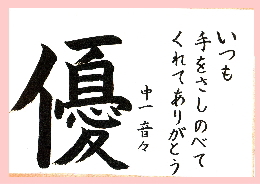 いつも
手をさしのべて
くれてありがとう
中一 音々
優